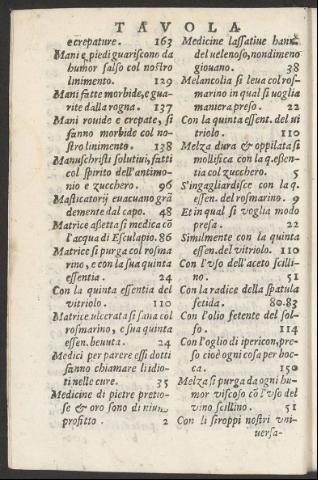 TAVOLA
e crepature. 163
Mani e piedi guariscone da
humor salso col nostro
linimento. 129
Mani fatte morbide, e gua-
rite dalla rogna. 137
Mani rouide e crepate, si
fanno morbide col no-
stro linimento. 138
Manuschristi solutiui, fatti
col spirito dell'antimo-
nio e zucchero. 96
Masticatorij euacuano grā
demente dal capo. 48
Matrice asſetta si medica cō
l'acqua di Esculapio. 86
Matrice si purga col rosma
rino, e con la sua quinta
essentia. 24
Con la quinta essentia del
vitriolo. 110
Matrice vlcerata si sana col
rosmarino, e sua quinta
essen. beuuta. 24
Medici per parere essi dotti
fanno chiamare li idio-
ti nelle cure. 35
Medicine di pietre pretio-
se & oro sono di niun
profitto. 2
Medicine lassatiue hann
del uelenoso, nondimeno
giouano. 38
Melancolia si leua col ros-
marino in qual si uoglia
maniera preso. 22
Con la quinta essent. del ui
triolo. 110
Melza dura & oppilata si
mollifica con la q. essen-
tia col zucchero. 5
S'ingagliardisce con la q.
essen. del rosmarino. 9
Et in qual si voglia modo
presa. 22
Similmente con la quinta
essen. del vitriolo. 110
Con l'vso dell'aceto scilli-
no. 51
Con la radice della spatula
fetida. 80.83
Con l'olio fetente del sol-
fo. 114
Con l'oglio di ipericon, pre-
so cioè ogni cosa per boc-
ca. 150
Melza si purga da ogni hu-
mor viscoso cō l'vso del
vino scillino. 51
Con li siroppi nostri vni-
uersa-